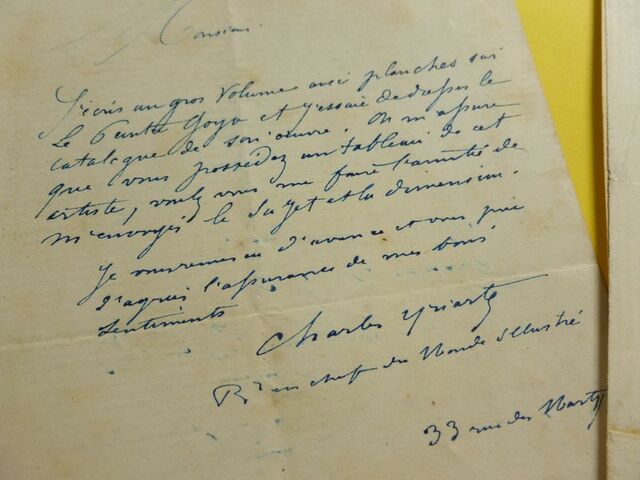 Monsieur
J'écris un gros Volume avec planches sur
Le Peintre Goya et j'essaie de dresser le
catalogue de son œuvre. On m'assure
que vous possédez un tableau de cet
artiste, voulez vous me faire l'amitié de
m'envoyer le Sujet et la dimension.
Je vous remercie d'avance et vous prie
d'agréer l'assurance de mes bons
Sentiments
Charles Yriarte
en chef du Monde illustré
33 rue des